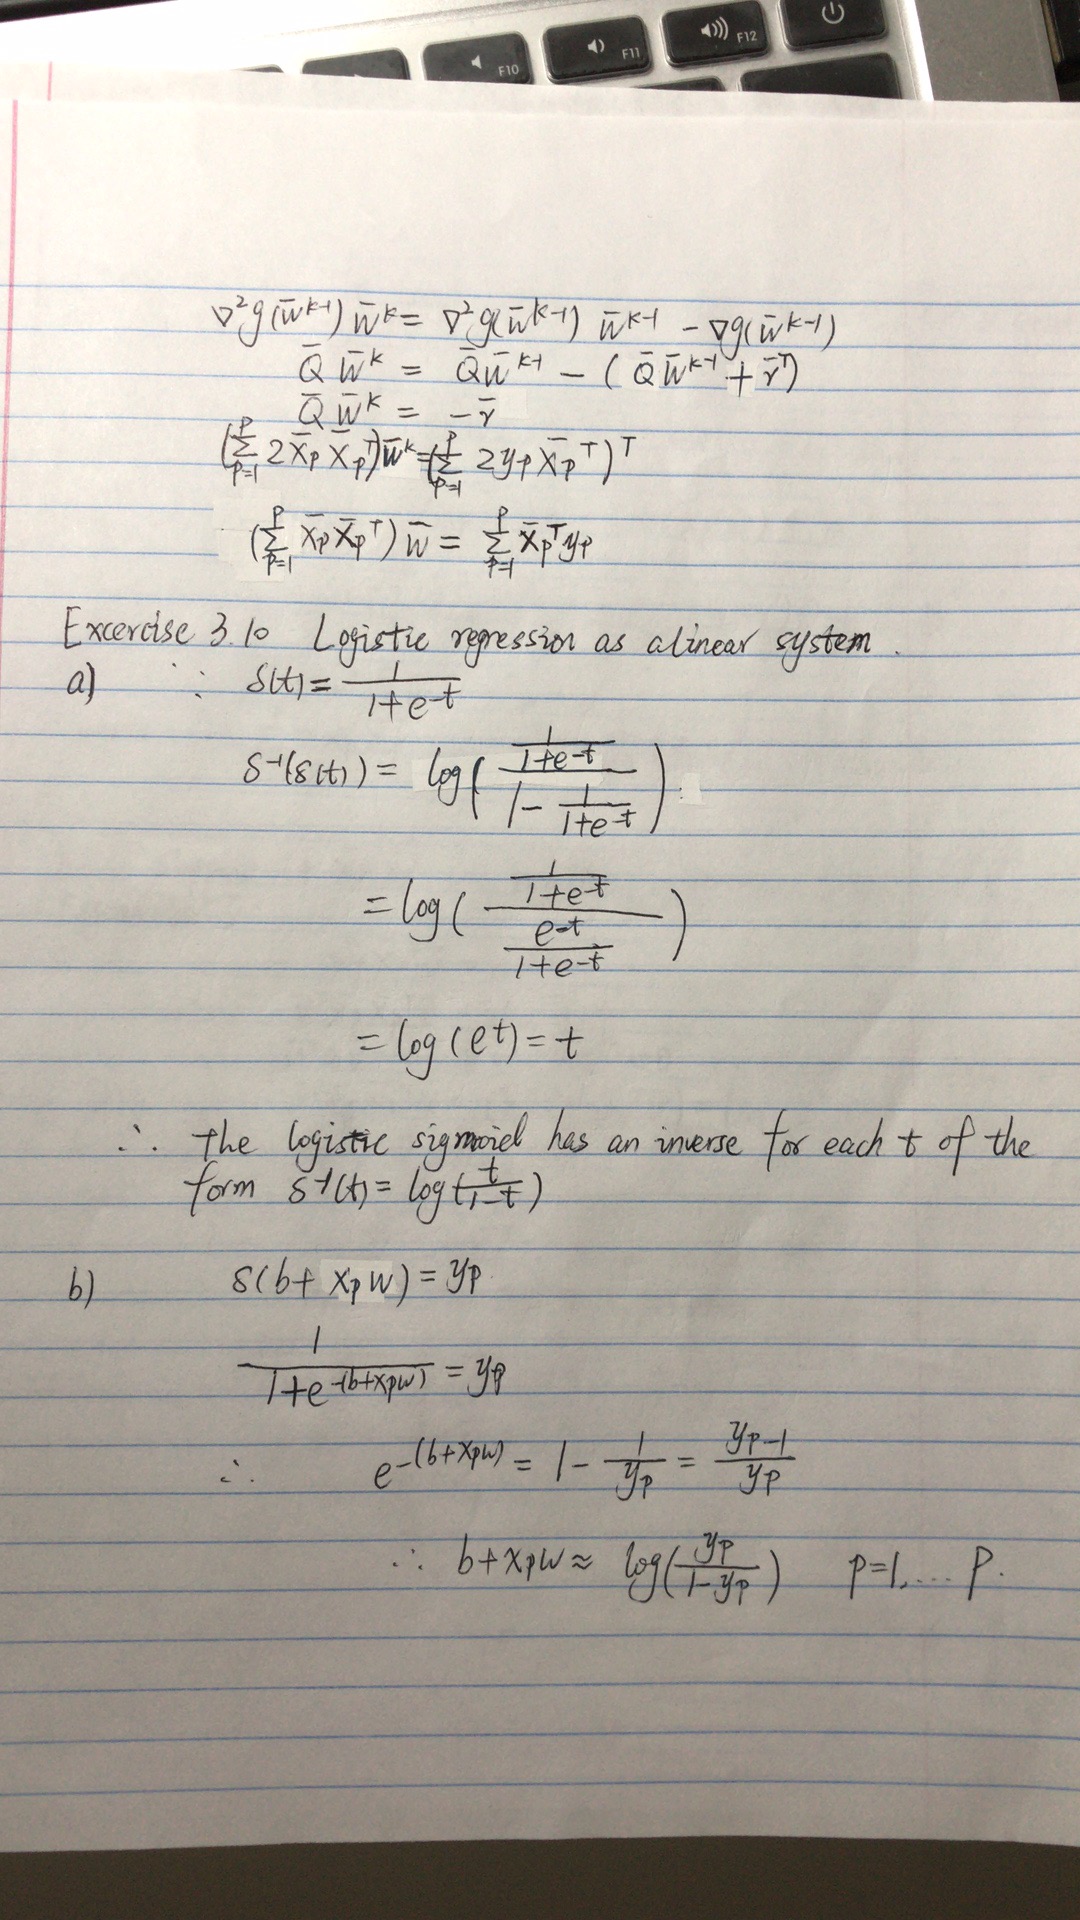 F10 F11 F12
∇²g(w̄ᵏ⁻¹) w̄ᵏ = ∇²g(w̄ᵏ⁻¹) w̄ᵏ⁻¹ − ∇g(w̄ᵏ⁻¹)
Q̄ w̄ᵏ = Q̄ w̄ᵏ⁻¹ − ( Q̄ w̄ᵏ⁻¹ + r̄ᵀ)
Q̄ w̄ᵏ = − r̄
(Σ_{p=1}^{P} 2 x̄p x̄pᵀ) w̄ᵏ = (Σ_{p=1}^{P} 2 yp x̄pᵀ)ᵀ
(Σ_{p=1}^{P} x̄p x̄pᵀ) w̄ = Σ_{p=1}^{P} x̄pᵀ yp
Excercise 3.10 Logistic regression as a linear system.
a) ∵ δ(t) = 1/(1+e^{-t})
δ⁻¹(δ(t)) = log( (1/(1+e^{-t})) / (1 − 1/(1+e^{-t})) )
= log( (1/(1+e^{-t})) / (e^{-t}/(1+e^{-t})) )
= log(e^t) = t
∴ The logistic sigmoid has an inverse for each t of the
form δ⁻¹(t) = log(t/(1−t))
b) δ(b + xp w) = yp
1/(1+e^{-(b+xpw)}) = yp
∴ e^{-(b+xpw)} = 1 − 1/yp = (yp−1)/yp
∴ b + xp w ≈ log(yp/(1−yp)) p=1,... P.